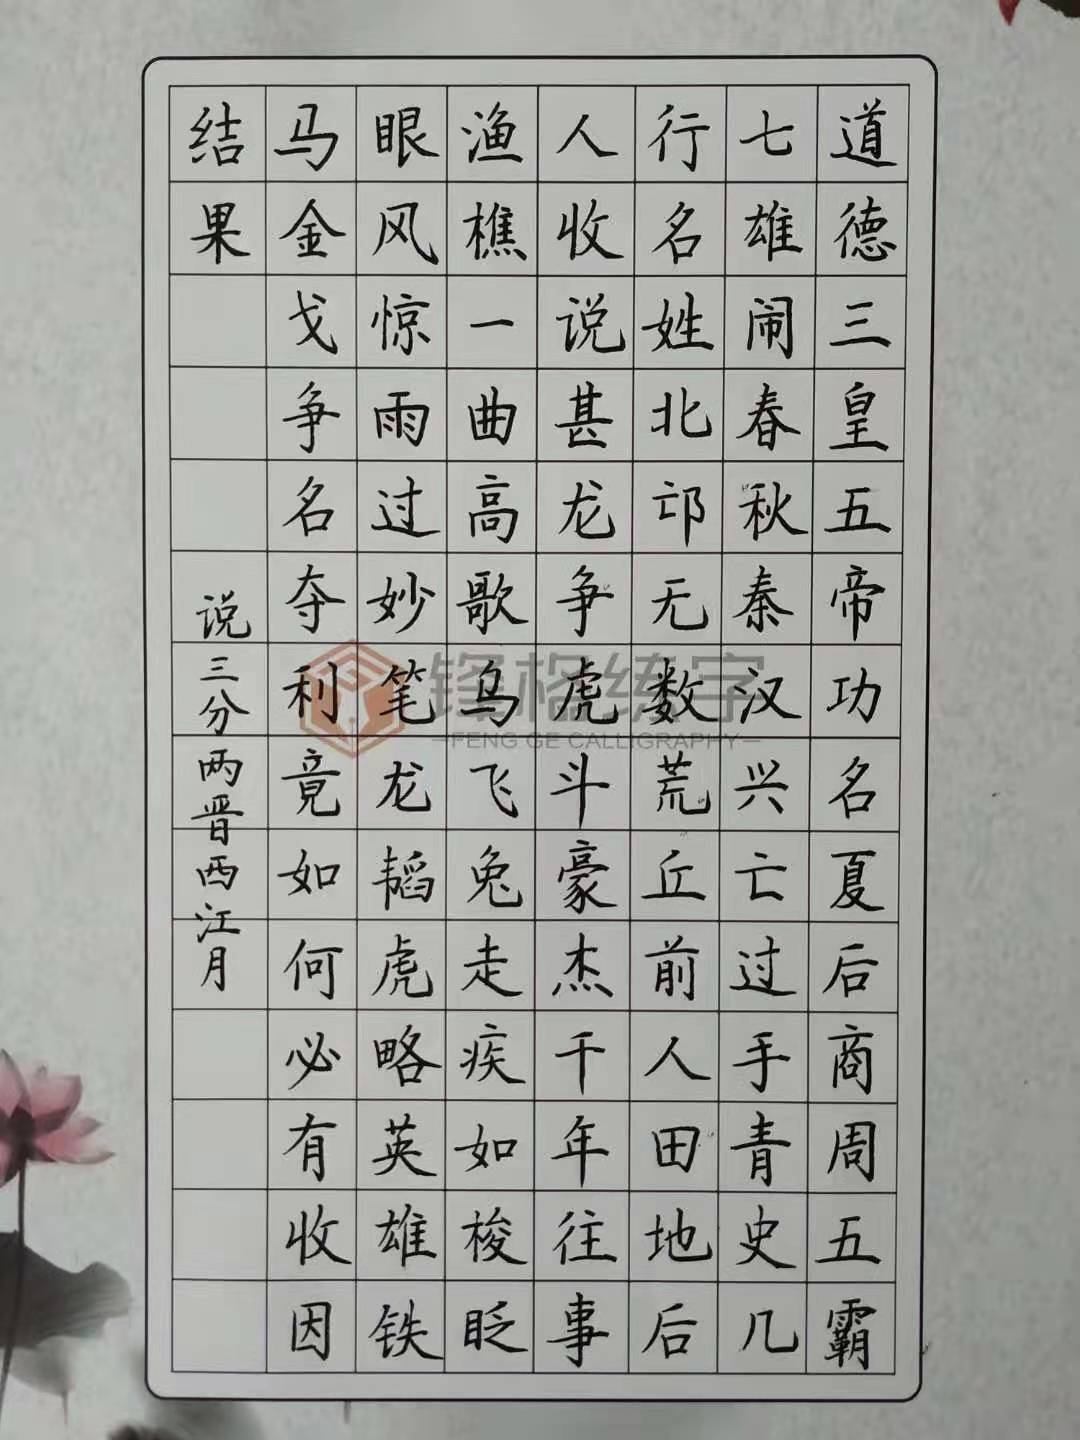 道德三皇五帝功名夏后商周五霸
七雄闹春秋秦汉兴亡过手青史几
行名姓北邙无数荒丘前人田地后
人收说甚龙争虎斗豪杰千年往事
渔樵一曲高歌乌飞兔走疾如梭眨
眼风惊雨过妙笔龙韬虎略英雄铁
马金戈争名夺利竟如何必有收因
结果
说三分两晋西江月
锋格练字
FENG GE CALLIGRAPHY